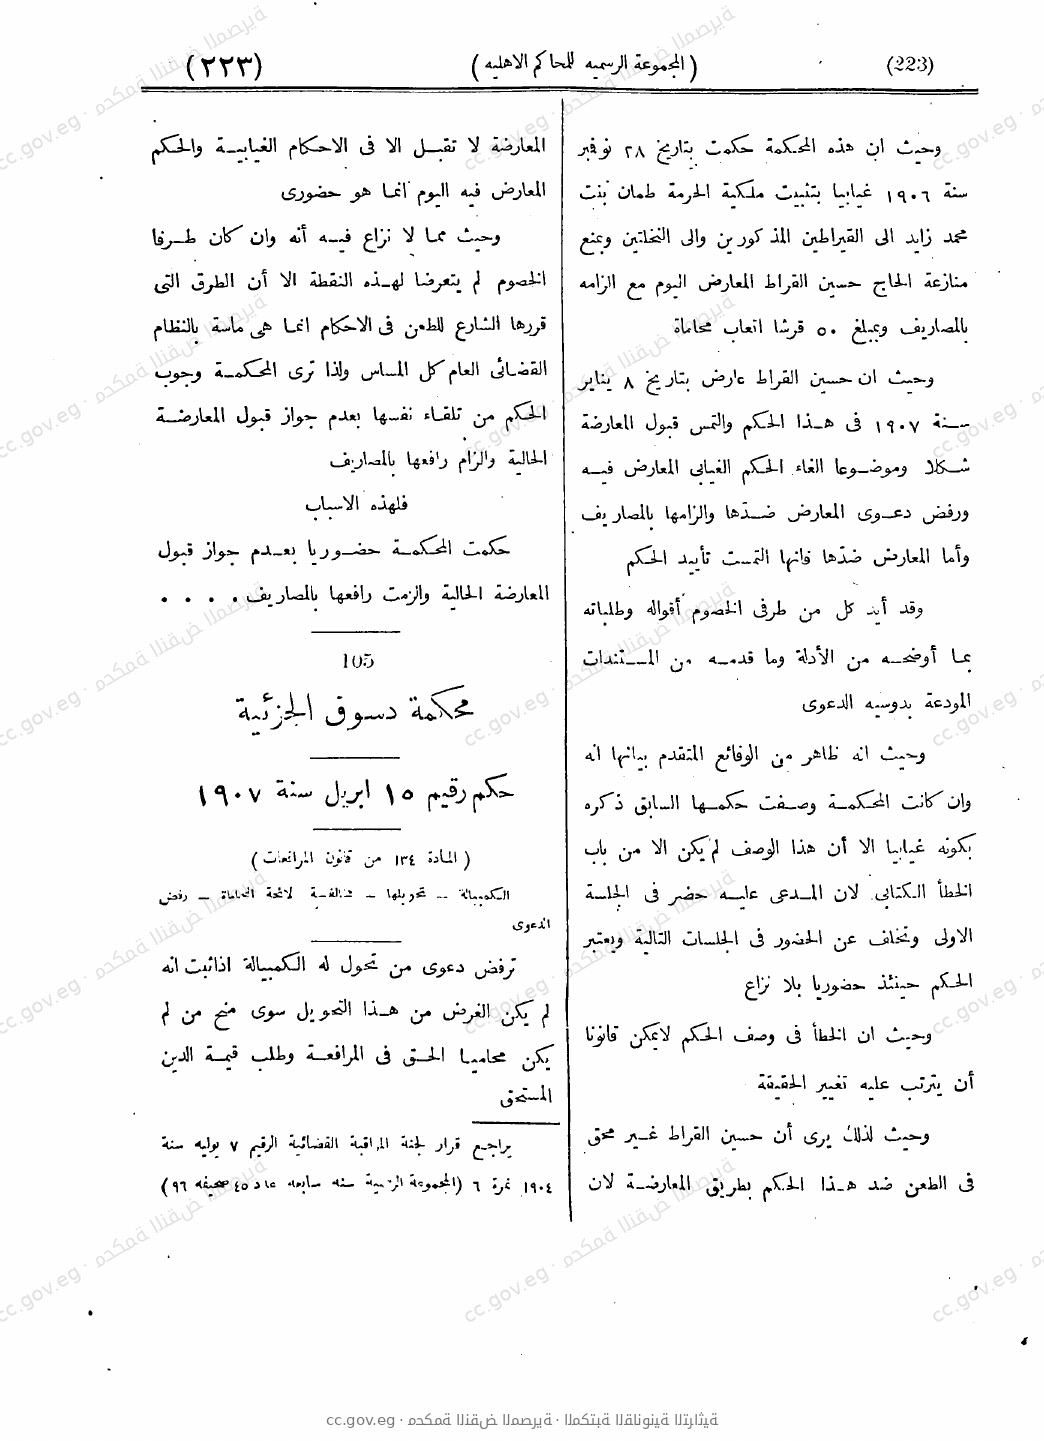 (223)
( المجموعة الرسميه للمحاكم الاهليه )
(٢٢٣)
وحيث ان هذه المحكمة حكمت بتاريخ ٢٨ نوفمبر
سنة ١٩٠٦ غيابيا بتثبيت ملكية الحرمة طمان بنت
محمد زايد الى القيراطين المذكورين والى النخلتين وبمنع
منازعة الحاج حسين القراط المعارض اليوم مع الزامه
بالمصاريف وبمبلغ ٥٠ قرشا اتعاب محاماة
وحيث ان حسين القراط عارض بتاريخ ٨ يناير
سنة ١٩٠٧ فى هذا الحكم والتمس قبول المعارضة
شكلا وموضوعا الغاء الحكم الغيابى المعارض فيه
ورفض دعوى المعارض ضدها والزامها بالمصاريف
وأما المعارض ضدها فانها التمست تأييد الحكم
وقد أيد كل من طرفى الخصوم أقواله وطلباته
بما أوضحه من الأدلة وما قدمه من المستندات
المودعة بدوسيه الدعوى
وحيث انه ظاهر من الوقائع المتقدم بيانها انه
وان كانت المحكمة وصفت حكمها السابق ذكره
بكونه غيابيا الا أن هذا الوصف لم يكن الا من باب
الخطأ الكتابى لان المدعى عليه حضر فى الجلسة
الاولى وتخلف عن الحضور فى الجلسات التالية ويعتبر
الحكم حينئذ حضوريا بلا نزاع
وحيث ان الخطأ فى وصف الحكم لايمكن قانونا
أن يترتب عليه تغيير الحقيقة
وحيث لذلك يرى أن حسين القراط غير محق
فى الطعن ضد هذا الحكم بطريق المعارضة لان
المعارضة لا تقبل الا فى الاحكام الغيابية والحكم
المعارض فيه اليوم انما هو حضورى
وحيث مما لا نزاع فيه أنه وان كان طرفا
الخصوم لم يتعرضا لهذه النقطة الا أن الطرق التى
قررها الشارع للطعن فى الاحكام انما هى ماسة بالنظام
القضائى العام كل المساس ولذا ترى المحكمة وجوب
الحكم من تلقاء نفسها بعدم جواز قبول المعارضة
الحالية والزام رافعها بالمصاريف
فلهذه الاسباب
حكمت المحكمة حضوريا بعدم جواز قبول
المعارضة الحالية والزمت رافعها بالمصاريف . . . .
105
محكمة دسوق الجزئية
حكم رقيم ١٥ ابريل سنة ١٩٠٧
( المادة ١٣٤ من قانون المرافعات )
الكمبيالة -- تحويلها - مخالفة لائحة المحاماة - رفض
الدعوى
ترفض دعوى من تحول له الكمبيالة اذا ثبت انه
لم يكن الغرض من هذا التحويل سوى منح من لم
يكن محاميا الحق فى المرافعة وطلب قيمة الدين
المستحق
يراجع قرار لجنة المراقبة القضائية الرقيم ٧ يوليه سنة
١٩٠٤ نمرة ٦ (المجموعة الرسمية سنه سابعه عدد ٤٥ صحيفه ٩٦)
cc.gov.eg · محكمة النقض المصرية · المكتبة القانونية التراثية